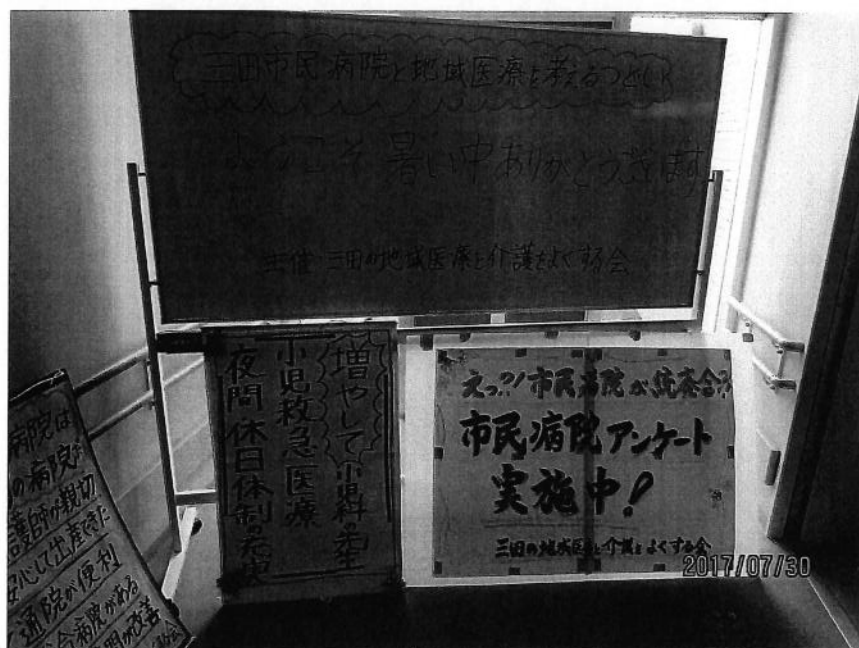 三田市民病院と地域医療を考えるつどい
ようこそ 暑い中ありがとうございます
主催 三田の地域医療と介護をよくする会
増やして小児科の先生
小児救急医療
夜間休日体制の充実
えっ?!市民病院が統廃合?
市民病院アンケート
実施中!
三田の地域医療と介護をよくする会
病院は
の病院が
護師が親切
安心して出産できた
通院が便利
合病院がある
が改善
2017/07/30